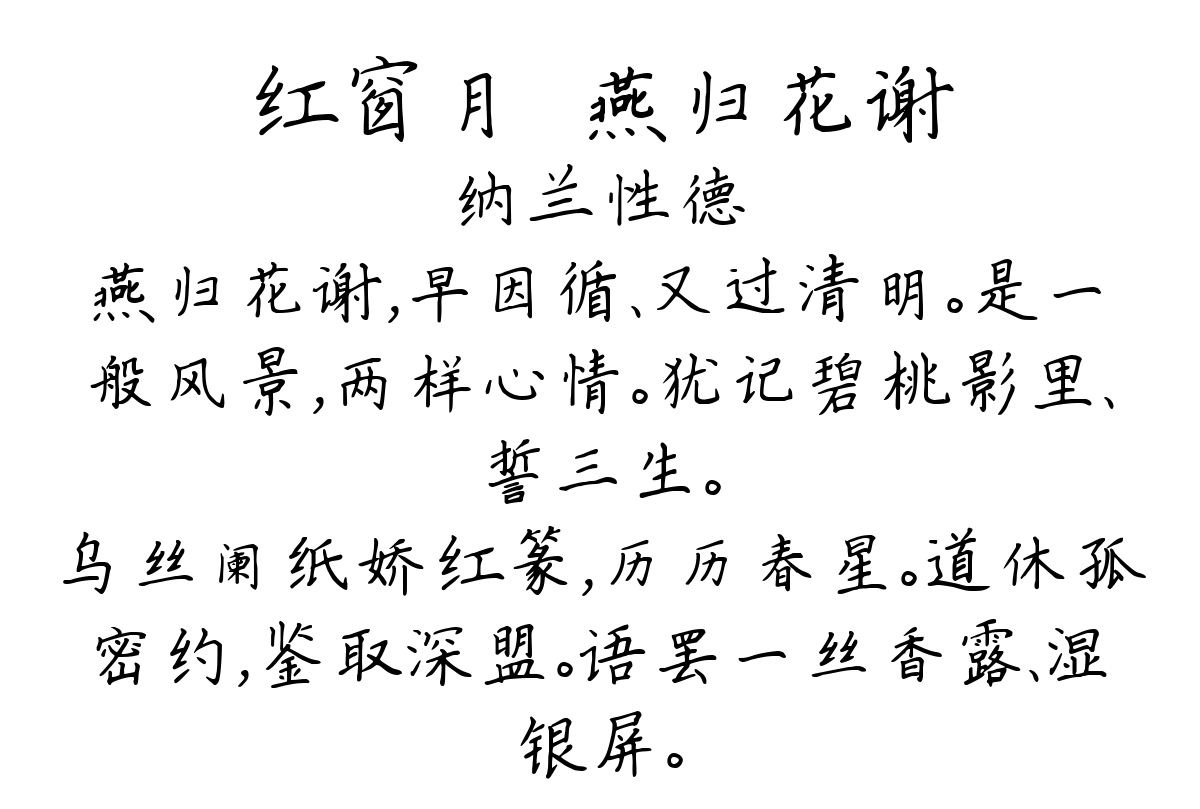 红窗月 燕归花谢
纳兰性德
燕归花谢,早因循、又过清明。是一
般风景,两样心情。犹记碧桃影里、
誓三生。
乌丝阑纸娇红篆,历历春星。道休孤
密约,鉴取深盟。语罢一丝香露、湿
银屏。